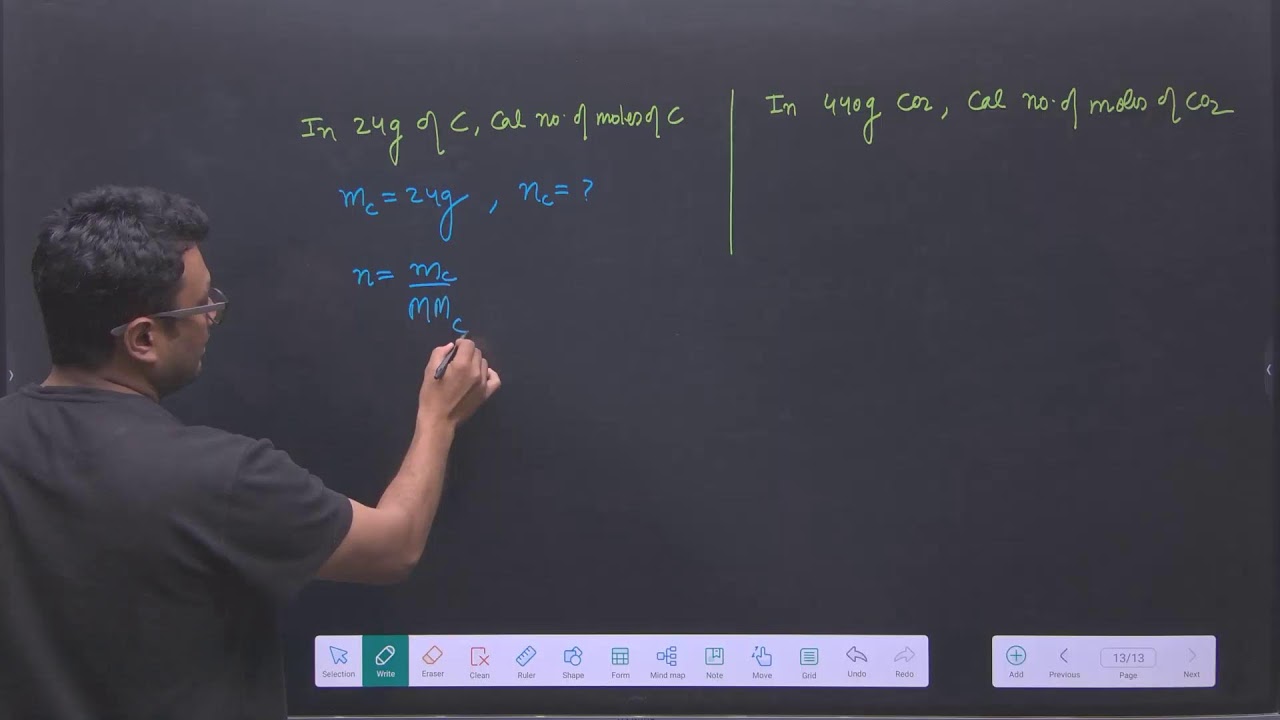 In 24g of C, Cal no. of moles of C
m_c = 24g , n_c = ?
n = m_c / MM_c
In 440g CO2, Cal no. of moles of CO2
Selection Write Eraser Clean Ruler Shape Form Mind map Note Move Grid Undo Redo
Add Previous 13/13 Page Next